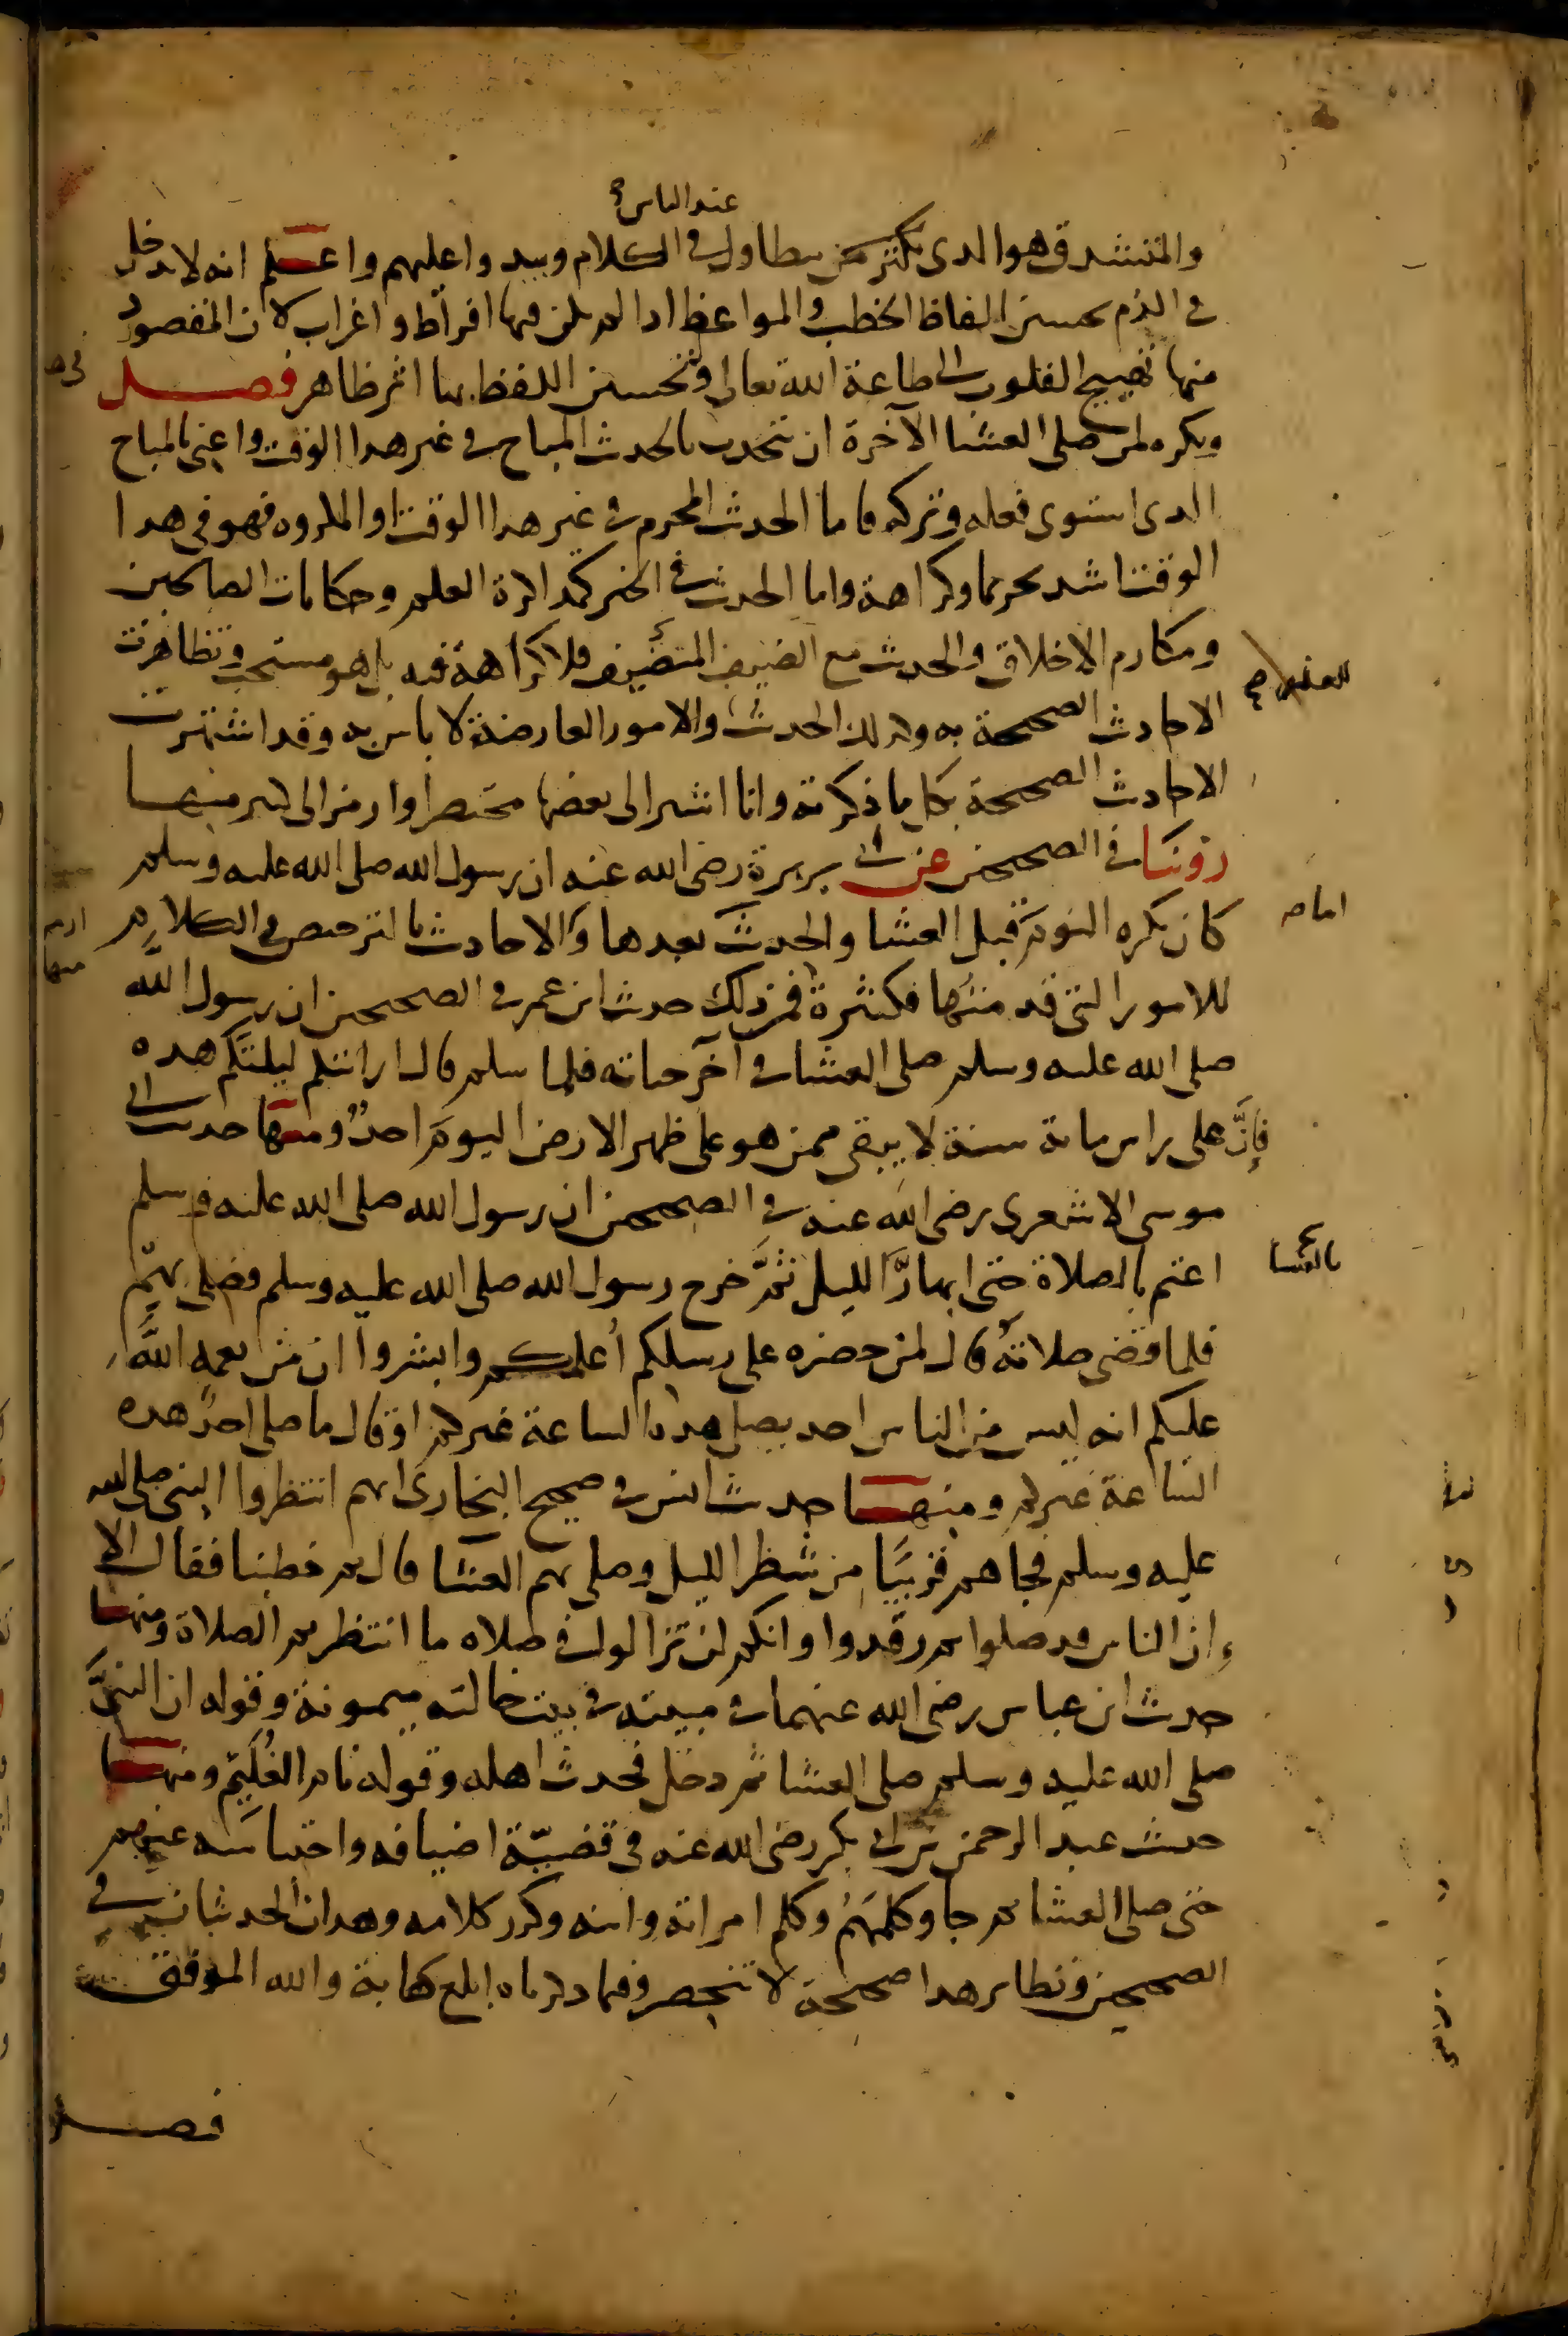 عند الناس صح
والمتشدق هو الذي يكثر من يتطاول في الكلام ويبدوا عليهم واعلم انه لا يدخل
في الذم تحسين الفاظ الخطب والمواعظ اذا لم يكن فيها افراط واغراب لان المقصود
منها تهييج القلوب الى طاعة الله تعالى وتحسين اللفظ بها اثر ظاهر فصل
ويكره لمن صلى العشا الآخرة ان يتحدث بالحديث المباح في غير هذا الوقت واعني بالمباح
الذي استوى فعله وتركه فاما الحديث المحرم في غير هذا الوقت او المكروه فهو في هذا
الوقت اشد تحريما وكراهة واما الحديث في الخير كمذاكرة العلم وحكايات الصالحين
ومكارم الاخلاق والحديث مع الضيف فلا كراهة فيه بل هو مستحب وتظاهرت
الاحاديث الصحيحة به وكذلك الحديث والامور العارضة لا باس به وقد اشتهرت
الاحاديث الصحيحة بكل ما ذكرته وانا اشير الى بعضها مختصرا وارمز الى كثير منها
روينا في الصحيحين عن ابي برزة رضي الله عنه ان رسول الله صلى الله عليه وسلم
كان يكره النوم قبل العشا والحديث بعدها والاحاديث بالترخيص في الكلام
للامور التي قدمتها فكثيرة فمن ذلك حديث ابن عمر في الصحيحين ان رسول الله
صلى الله عليه وسلم صلى العشا في آخر حياته فلما سلم قال ارايتكم ليلتكم هذه
فإنَّ على راس ماية سنة لا يبقى ممن هو على ظهر الارض اليوم احدٌ ومنها حديث ابي
موسى الاشعري رضي الله عنه في الصحيحين ان رسول الله صلى الله عليه وسلم
اعتم بالصلاة حتى ابهارَّ الليل ثمَّ خرج رسول الله صلى الله عليه وسلم فصلى بهم
فلما قضى صلاته قال لمن حضره على رسلكم أعلمكم وابشروا ان من نعمة الله
عليكم انه ليس من الناس احد يصلي هذه الساعة غيركم او قال ما صلى احدٌ هذه
الساعة غيركم ومنها حديث انس في صحيح البخاري انهم انتظروا النبي صلى الله
عليه وسلم فجاهم قريبًا من شطر الليل وصلى بهم العشا قال ثم خطبنا فقال الا
إن الناس قد صلوا ثم رقدوا وانكم لن تزالوا في صلاه ما انتظرتم الصلاة ومنها
حديث ابن عباس رضي الله عنهما في مبيته في بيت خالته ميمونة وقوله ان النبيَّ
صلى الله عليه وسلم صلى العشا ثم دخل فحدث اهله وقوله نام الغُلَيِّم ومنها
حديث عبد الرحمن بن ابي بكر رضي الله عنه في قضيّة اضيافه واحتباسه عنهم
حتى صلى العشا ثم جا وكلمهُم وكلم امراته وابنه وكرر كلامه وهذان الحديثان في
الصحيحين ونظاير هذا صحيحة لا تنحصر وفيما ذكرناه ابلغ كفاية والله الموفق
فصل